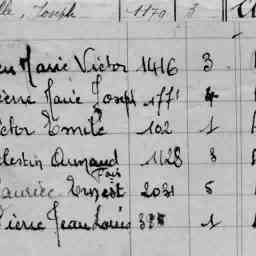 lle, Joseph 1179 3
Marie Victor 1416 3
ierre Marie Joseph 1771 4
ctor Emile 102 1
lestin Armand 1128 3
Fois
aurice Ernest 2031 5
Pierre Jean Louis 1